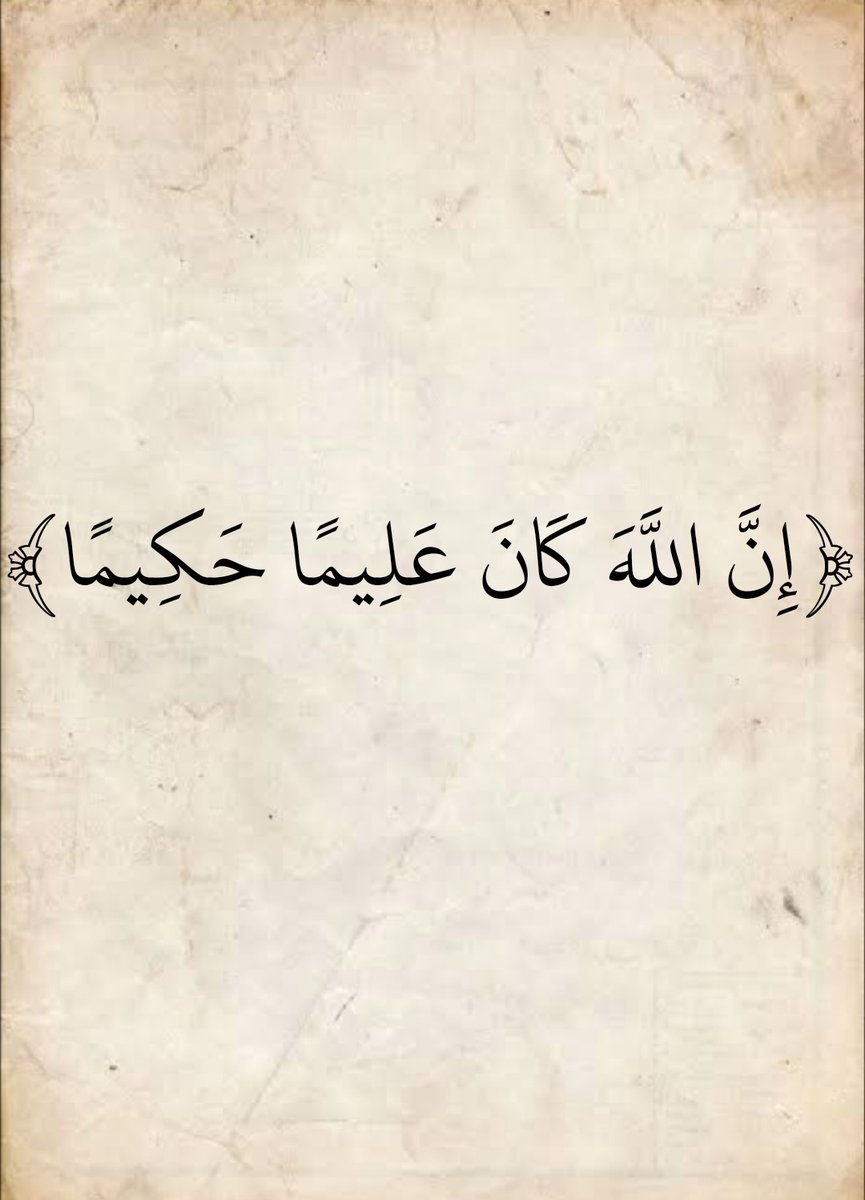 ﴿إِنَّ اللَّهَ كَانَ عَلِيمًا حَكِيمًا﴾